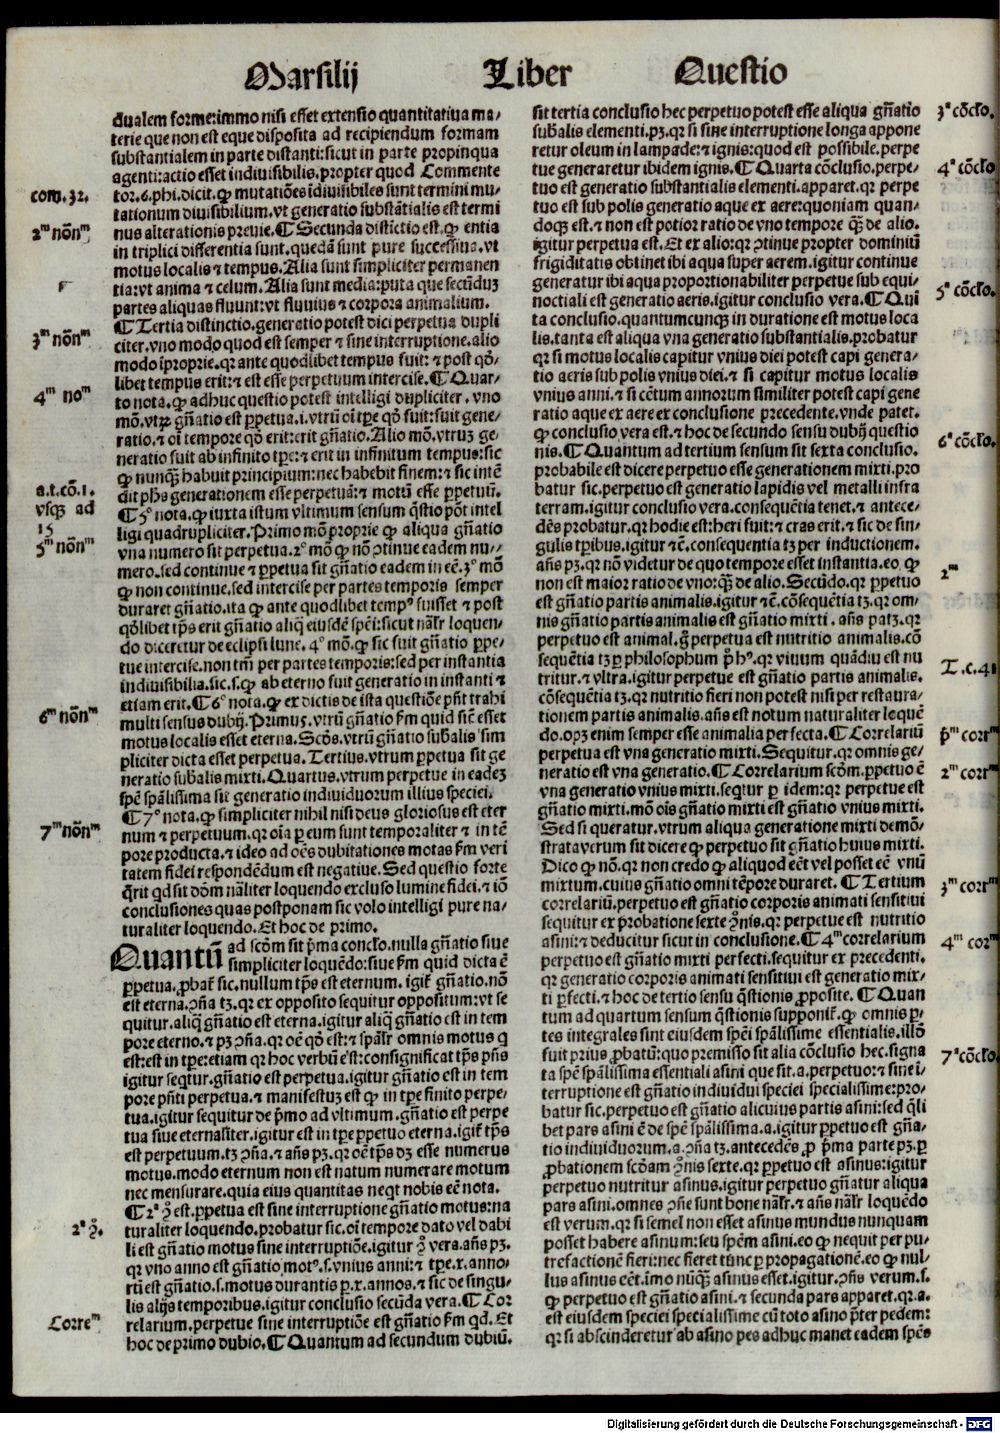 Marsilij Liber Questio
dualem forme:immo nisi esset extensio quantitatiua ma/
terie que non est eque disposita ad recipiendum formam
substantialem in parte distanti:sicut in parte propinqua
agenti:actio esset indiuisibilis.propter quod Commente
com. 32.
tor.6.phi.dicit.ꝙ mutatiões idiuisibiles sunt termini mu/
tationum diuisibilium.vt generatio substãtialis est termi
2ᵐ nõnᵐ
nus alterationis preuie.¶Secunda distictio est.ꝙ entia
in triplici differentia sunt.quedã sunt pure successiua.vt
motus localis ⁊ tempus.Alia sunt simpliciter permanen
tia:vt anima ⁊ celum.Alia sunt media:puta que secũdũ
partes aliquas fluunt:vt fluuius ⁊ corpora animalium.
3ᵐ nõnᵐ
¶Tertia distinctio.generatio potest dici perpetua dupli
citer.vno modo quod est semper ⁊ sine interruptione.alio
modo iproprie.qr ante quodlibet tempus fuit: ⁊ post qð/
libet tempus erit:⁊ est esse perpetuum intercise.¶Quar/
4ᵐ noᵐ
to nota.ꝙ adhuc questio potest intelligi dupliciter. vno
mõ.vtꝝ gñatio est ꝑpetua.i.vtrũ oi tꝑe qð fuit:fuit gene/
ratio.⁊ oi tempore qð erit:erit gñatio.Alio mõ.vtruz ge/
neratio fuit ab infinito tꝑe:⁊ erit in infinitum tempus:sic
ꝙ nunqᷓ habuit principium:nec habebit finem:⁊ sic intẽ
a.t.cõ.1.
dit phs generationem esse perpetuã:⁊ motũ esse ꝑpetuũ.
vsqꝫ ad
¶5° nota.ꝙ iuxta istum vltimum sensum qstio põt intel
15
ligi quadrupliciter.Primo mõ proprie ꝙ aliqua gñatio
5ᵐ nõnᵐ
vna numero sit perpetua.2° mõ ꝙ nõ ɔtinue eadem nu/
mero.sed continue ⁊ ꝑpetua sit gñatio eadem in eẽ.3° mõ
ꝙ non continue.sed intercise per partes temporis semper
duraret gñatio.ita ꝙ ante quodlibet tempꝰ fuisset ⁊ post
qðlibet tꝑs erit gñatio aliqͥ eiusdẽ spẽi:sicut nãlr loquen/
do diceretur de eclipsi lune. 4° mõ.ꝙ sic fuit gñatio ꝑpe/
tue intercise.non tm̃ per partes temporis:sed per instantia
indiuisibilia.sic.s.ꝙ ab eterno fuit generatio in instanti ⁊
etiam erit.¶6° nota.ꝙ ex dictis de ista questiõe pñt trahi
6ᵐ nõnᵐ
multi sensus dubij.Primus.vtrũ gñatio ẜm quid siẽ esset
motus localis esset eterna.Scðs.vtrũ gñatio subalis sim
pliciter dicta esset perpetua.Tertius.vtrum ꝑpetua sit ge
neratio subalis mixti.Quartus.vtrum perpetue in eadez
spẽ spãlissima sit generatio indiuiduorum illius speciei.
¶7° nota.ꝙ simpliciter nihil nisi deus gloriosus est eter
7ᵐ nõnᵐ
num ⁊ perpetuum.qr oĩa ꝑ eum sunt temporaliter ⁊ in tẽ
pore producta.⁊ ideo ad oẽs dubitationes motas ẜm veri
tatem fidei respondẽdum est negatiue.Sed questio forte
q̃rit qd sit dõm nãliter loquendo excluso lumine fidei.⁊ iõ
conclusiones quas postponam sic volo intelligi pure na/
turaliter loquendo.Et hoc de primo.
Quantũ ad scõm sit pͥma concło.nulla gñatio siue
simpliciter loquẽdo:siue ẜm quid dicta ẽ
ꝑpetua.ꝓbat̃ sic.nullum tꝑs est eternum. igit̃ gñatio.nõ
est eterna.ɔña tꝫ.qr ex opposito sequitur oppositum:vt se
quitur.aliqͣ gñatio est eterna.igitur aliqͣ gñatio est in tem
pore eterno.⁊ pꝫ ɔña.qr oẽ qð est:⁊ spãlr omnis motus q
est:est in tꝑe:etiam qr hoc verbũ est:consignificat tꝑs pñs
igitur seqͥtur.gñatio est perpetua.igitur gñatio est in tem
pore pñti perpetua.⁊ manifestuz est ꝙ in tꝑe finito perpe/
tua.igitur sequitur de pͥmo ad vltimum.gñatio est perpe
tua siue eternaliter.igitur est in tꝑe ꝑpetuo eterna.igit̃ tꝑs
est perpetuum.tꝫ ɔña.⁊ añs pꝫ.qr oẽ tꝑs dꝫ esse numerus
motus.modo eternum non est natum numerare motum
nec mensurare.quia eius quantitas neqͥt nobis eẽ nota.
2ᵃ ɔ̃.
¶2ᵃ ɔ̃ est.ꝑpetua est sine interruptione gñatio motus:na
turaliter loquendo.probatur sic.oi tempore dato vel dabi
li est gñatio motus sine interruptiõe.igitur ɔ̃ vera.añs pꝫ.
qr vno anno est gñatio motꝰ.s.vnius anni:⁊ tꝑe.x.anno/
rũ est gñatio.s.motus durantis ꝑ.x.annos.⁊ sic de singu/
lis alijs temporibus.igitur conclusio secũda vera.¶Cor
Correᵐ
relarium.perpetue sine interruptiõe est gñatio ẜm qd. Et
hoc de primo dubio.¶Quantum ad secundum dubiũ.
3ᵃ cõcło.
sit tertia conclusio hec perpetuo potest esse aliqua gñatio
subalis elementi.pꝫ.qr si sine interruptione longa appone
retur oleum in lampade:⁊ ignis:quod est possibile.perpe
4ᵃ cõcło
tue generaretur ibidem ignis.¶Quarta cõclusio.perpe/
tuo est generatio substantialis elementi.apparet.qr perpe
tuo est sub polis generatio aque ex aere:quoniam quan/
doqꝫ est.⁊ non est potior ratio de vno tempore qᷓꝫ de alio.
igitur perpetua est.Et ex alio:qr ɔtinue propter dominiũ
frigiditatis obtinet ibi aqua super aerem.igitur continue
generatur ibi aqua proportionabiliter perpetue sub equi/
5ᵃ cõcło.
noctiali est generatio aeris.igitur conclusio vera.¶Qui
ta conclusio.quantumcunqꝫ in duratione est motus loca
lis.tanta est aliqua vna generatio substantialis.probatur
qr si motus localis capitur vnius diei potest capi genera/
tio aeris sub polis vnius diei.⁊ si capitur motus localis
vnius anni.⁊ si cẽtum annorum similiter potest capi gene
ratio aque ex aere ex conclusione precedente.vnde patet.
ꝙ conclusio vera est.⁊ hoc de secundo sensu dubij questio
6ᵃ cõcło.
nis.¶Quantum ad tertium sensum sit sexta conclusio.
probabile est dicere perpetuo esse generationem mixti.pro
batur sic.perpetuo est generatio lapidis vel metalli infra
terram.igitur conclusio vera.consequẽtia tenet.⁊ antece/
dẽs probatur.qr hodie est:heri fuit:⁊ cras erit.⁊ sic de sin/
gulis tꝑibus.igitur ⁊c̃.consequentia tꝫ per inductionem.
añs pꝫ.qr nõ videtur de quo tempore esset instantia.eo ꝙ
2ᵐ
non est maior ratio de vno:qᷓꝫ de alio.Secũdo.qr ꝑpetuo
est gñatio partis animalis.igitur ⁊c̃.cõsequẽtia tꝫ.qr om/
nis gñatio partis animalis est gñatio mixti. añs patꝫ.qr
perpetuo est animal.gͦ perpetua est nutritio animalis.cõ
T.c.41
sequẽtia tꝫ ꝑ philosophum pͥ hꝰ.qr viuum quãdiu est nu
tritur.⁊ vltra.igitur perpetue est gñatio partis animalis.
cõsequẽtia tꝫ.qr nutritio fieri non potest nisi per restaura/
tionem partis animalis.añs est notum naturaliter loquẽ
pͥᵐ corrᵐ
do.opꝫ enim semper esse animalia perfecta.¶Correlariũ
perpetua est vna generatio mixti.Sequitur.qr omnis ge/
2ᵐ corrᵐ
neratio est vna generatio.¶Correlarium scõm.ꝑpetuo ẽ
vna generatio vnius mixti.seqͥtur ꝑ idem:qr perpetue est
gñatio mixti.mõ oĩs gñatio mixti est gñatio vnius mixti.
Sed si queratur.vtrum aliqua generatione mixti demõ/
strata verum sit dicere ꝙ perpetuo sit gñatio huius mixti.
Dico ꝙ nõ.qr non credo ꝙ aliquod eẽt vel posset eẽ vnũ
3ᵐ corrᵐ
mixtum.cuius gñatio omni tẽpore duraret. ¶Tertium
correlariũ.perpetuo est gñatio corporis animati sensitiui
sequitur ex probatione sexte ɔ̃nis.qr perpetue est nutritio
4ᵐ corᵐ
asini:⁊ deducitur sicut in conclusione.¶4ᵐ correlarium
perpetuo est gñatio mixti perfecti.sequitur ex precedenti.
qr generatio corporis animati sensitiui est generatio mix/
ti ꝑfecti.⁊ hoc de tertio sensu q̃stionis ꝓposite. ¶Quan
tum ad quartum sensum q̃stionis supponit̃.ꝙ omnis ꝑ/
tes integrales sint eiusdem spẽi spãlissime essentialis.illð
7ᵃ cõcło
fuit prius ꝓbatũ:quo premisso sit alia cõclusio hec.signa
ta spẽ spãlissima essentiali asini que sit.a.perpetuo:⁊ sine i/
terruptione est gñatio indiuidui speciei specialissime:pro/
batur sic.perpetuo est gñatio alicuius partis asini:sed qͥli
bet pars asini ẽ de spẽ spãlissima.a.igitur ꝑpetuo est gña/
tio indiuiduorum.a.ɔña tꝫ.antecedẽs ꝓ pͥma parte pꝫ.ꝑ
ꝓbationem scðam ɔ̃nis sexte.qr ꝑpetuo est asinus:igitur
perpetuo nutritur asinus.igitur perpetuo gñatur aliqua
pars asini.omnes ɔñe sunt bone nãlr.⁊ añs nãlr loquẽdo
est verum.qr si semel non esset asinus mundus nunquam
posset habere asinum:seu spẽm asini.eo ꝙ nequit per pu/
trefactionẽ fieri:nec fieret tunc ꝑ propagationẽ.eo ꝙ nul/
lus asinus eẽt.imo nũqᷓꝫ asinus esset.igitur.ɔñs verum.s.
ꝙ perpetuo est gñatio asini.⁊ secunda pars apparet.qr.a.
est eiusdem speciei specialissime cũ toto asino pͥter pedem:
qr si abscinderetur ab asino pes adhuc manet eadem spẽs
Digitalisierung gefördert durch die Deutsche Forschungsgemeinschaft - DFG